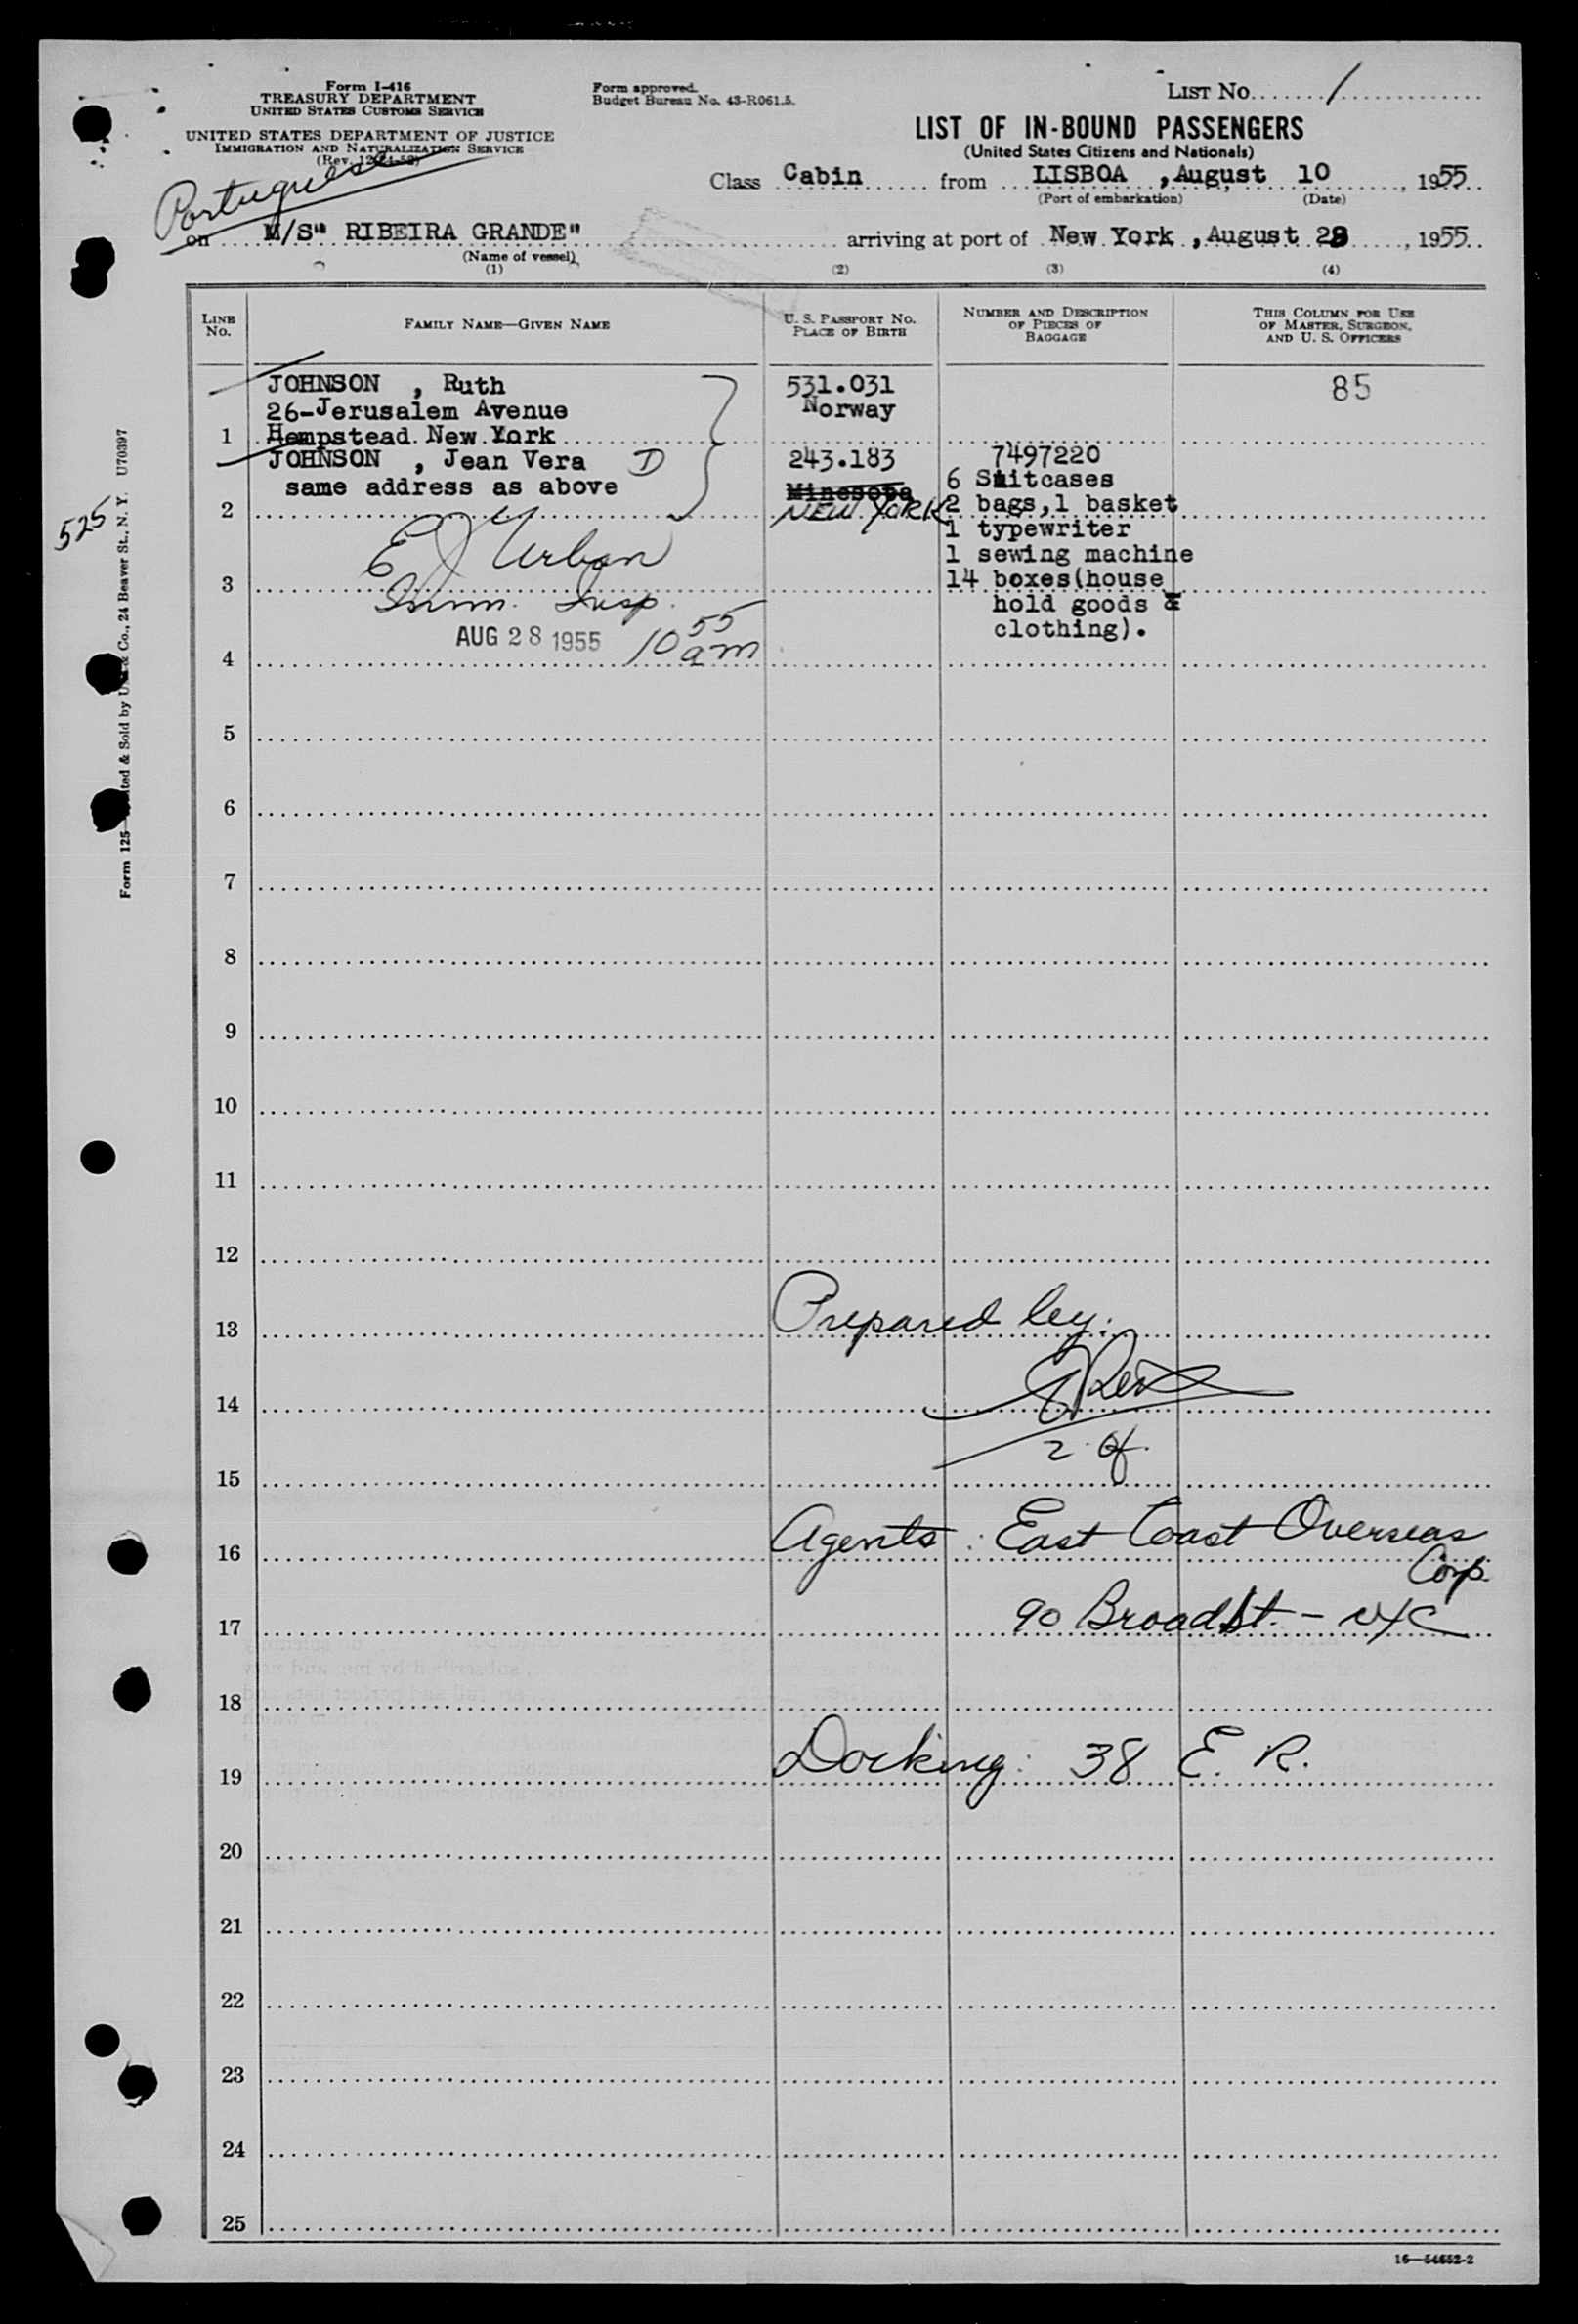 Form I-416
TREASURY DEPARTMENT
UNITED STATES CUSTOMS SERVICE
UNITED STATES DEPARTMENT OF JUSTICE
IMMIGRATION AND NATURALIZATION SERVICE
(Rev. 12
Form approved.
Budget Bureau No. 43-R061.5.
LIST NO. 1
LIST OF IN-BOUND PASSENGERS
(United States Citizens and Nationals)
Class Cabin from LISBOA , August 10 , 1955
(Port of embarkation) (Date)
Portuguese
on M/S" RIBEIRA GRANDE" arriving at port of New York , August 28 , 1955
(Name of vessel)
(1) (2) (3) (4)
LINE NO. FAMILY NAME—GIVEN NAME U. S. PASSPORT NO. PLACE OF BIRTH NUMBER AND DESCRIPTION OF PIECES OF BAGGAGE THIS COLUMN FOR USE OF MASTER, SURGEON, AND U. S. OFFICERS
JOHNSON , Ruth 531.031 85
26-Jerusalem Avenue Norway
1 Hempstead New York
JOHNSON , Jean Vera D 243.183 7497220
same address as above Minesota 6 Suitcases
2 NEW YORK 2 bags,1 basket
E J Urban 1 typewriter
1 sewing machine
3 14 boxes(house
Imm. Insp. hold goods &
AUG 28 1955 10 55 am clothing).
4
5
6
7
8
9
10
11
12
13 Prepared by:
14
2 of.
15
16 Agents : East Coast Overseas
Corp.
17 90 Broad St. - NYC
18
19 Docking : 38 E. R.
20
21
22
23
24
25
16—54652-2
525
Form 125— & Sold by Co., 24 Beaver St., N. Y. U70397